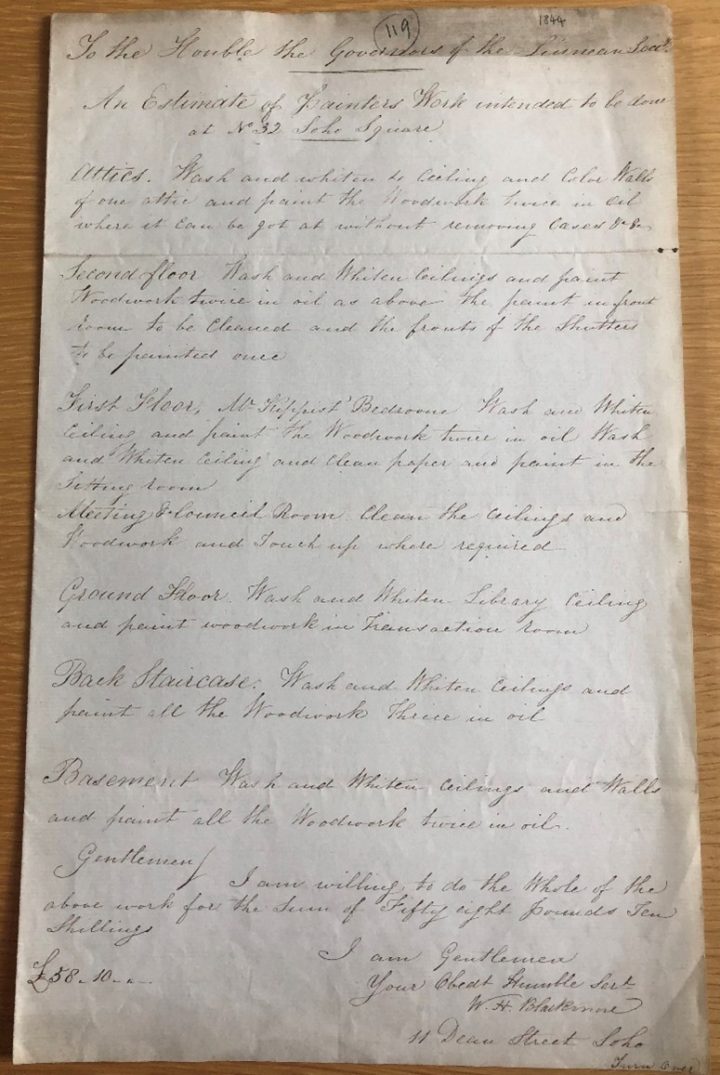 119
1844
To the Honble the Governors of the Linnean Socy.
An Estimate of Painters Work intended to be done
at No 32 Soho Square
Attics. Wash and whiten to Ceiling and Color Walls
of one attic and paint the Woodwork twice in oil
where it can be got at without removing Cases &c
Second floor Wash and Whiten Ceilings and paint
Woodwork twice in oil as above the paint in front
room to be Cleaned and the fronts of the Shutters
to be painted once
First Floor, Mr Kippist' Bedroom Wash and Whiten
Ceiling and paint the Woodwork twice in oil Wash
and Whiten Ceiling and Clean paper and paint in the
Sitting room
Meeting & Council Room. Clean the Ceilings and
Woodwork and Touch up where required
Ground Floor. Wash and Whiten Library Ceiling
and paint woodwork in Transaction room
Back Staircase. Wash and Whiten Ceilings and
paint all the Woodwork Thrice in oil
Basement Wash and Whiten Ceilings and Walls
and paint all the Woodwork twice in oil.
Gentlemen
I am willing to do the Whole of the
above work for the Sum of Fifty eight pounds Ten
Shillings
I am Gentlemen
£58-10-"-
Your Obedt Humble Sert
W. H. Blackmore
11 Dean Street Soho
Turn Over